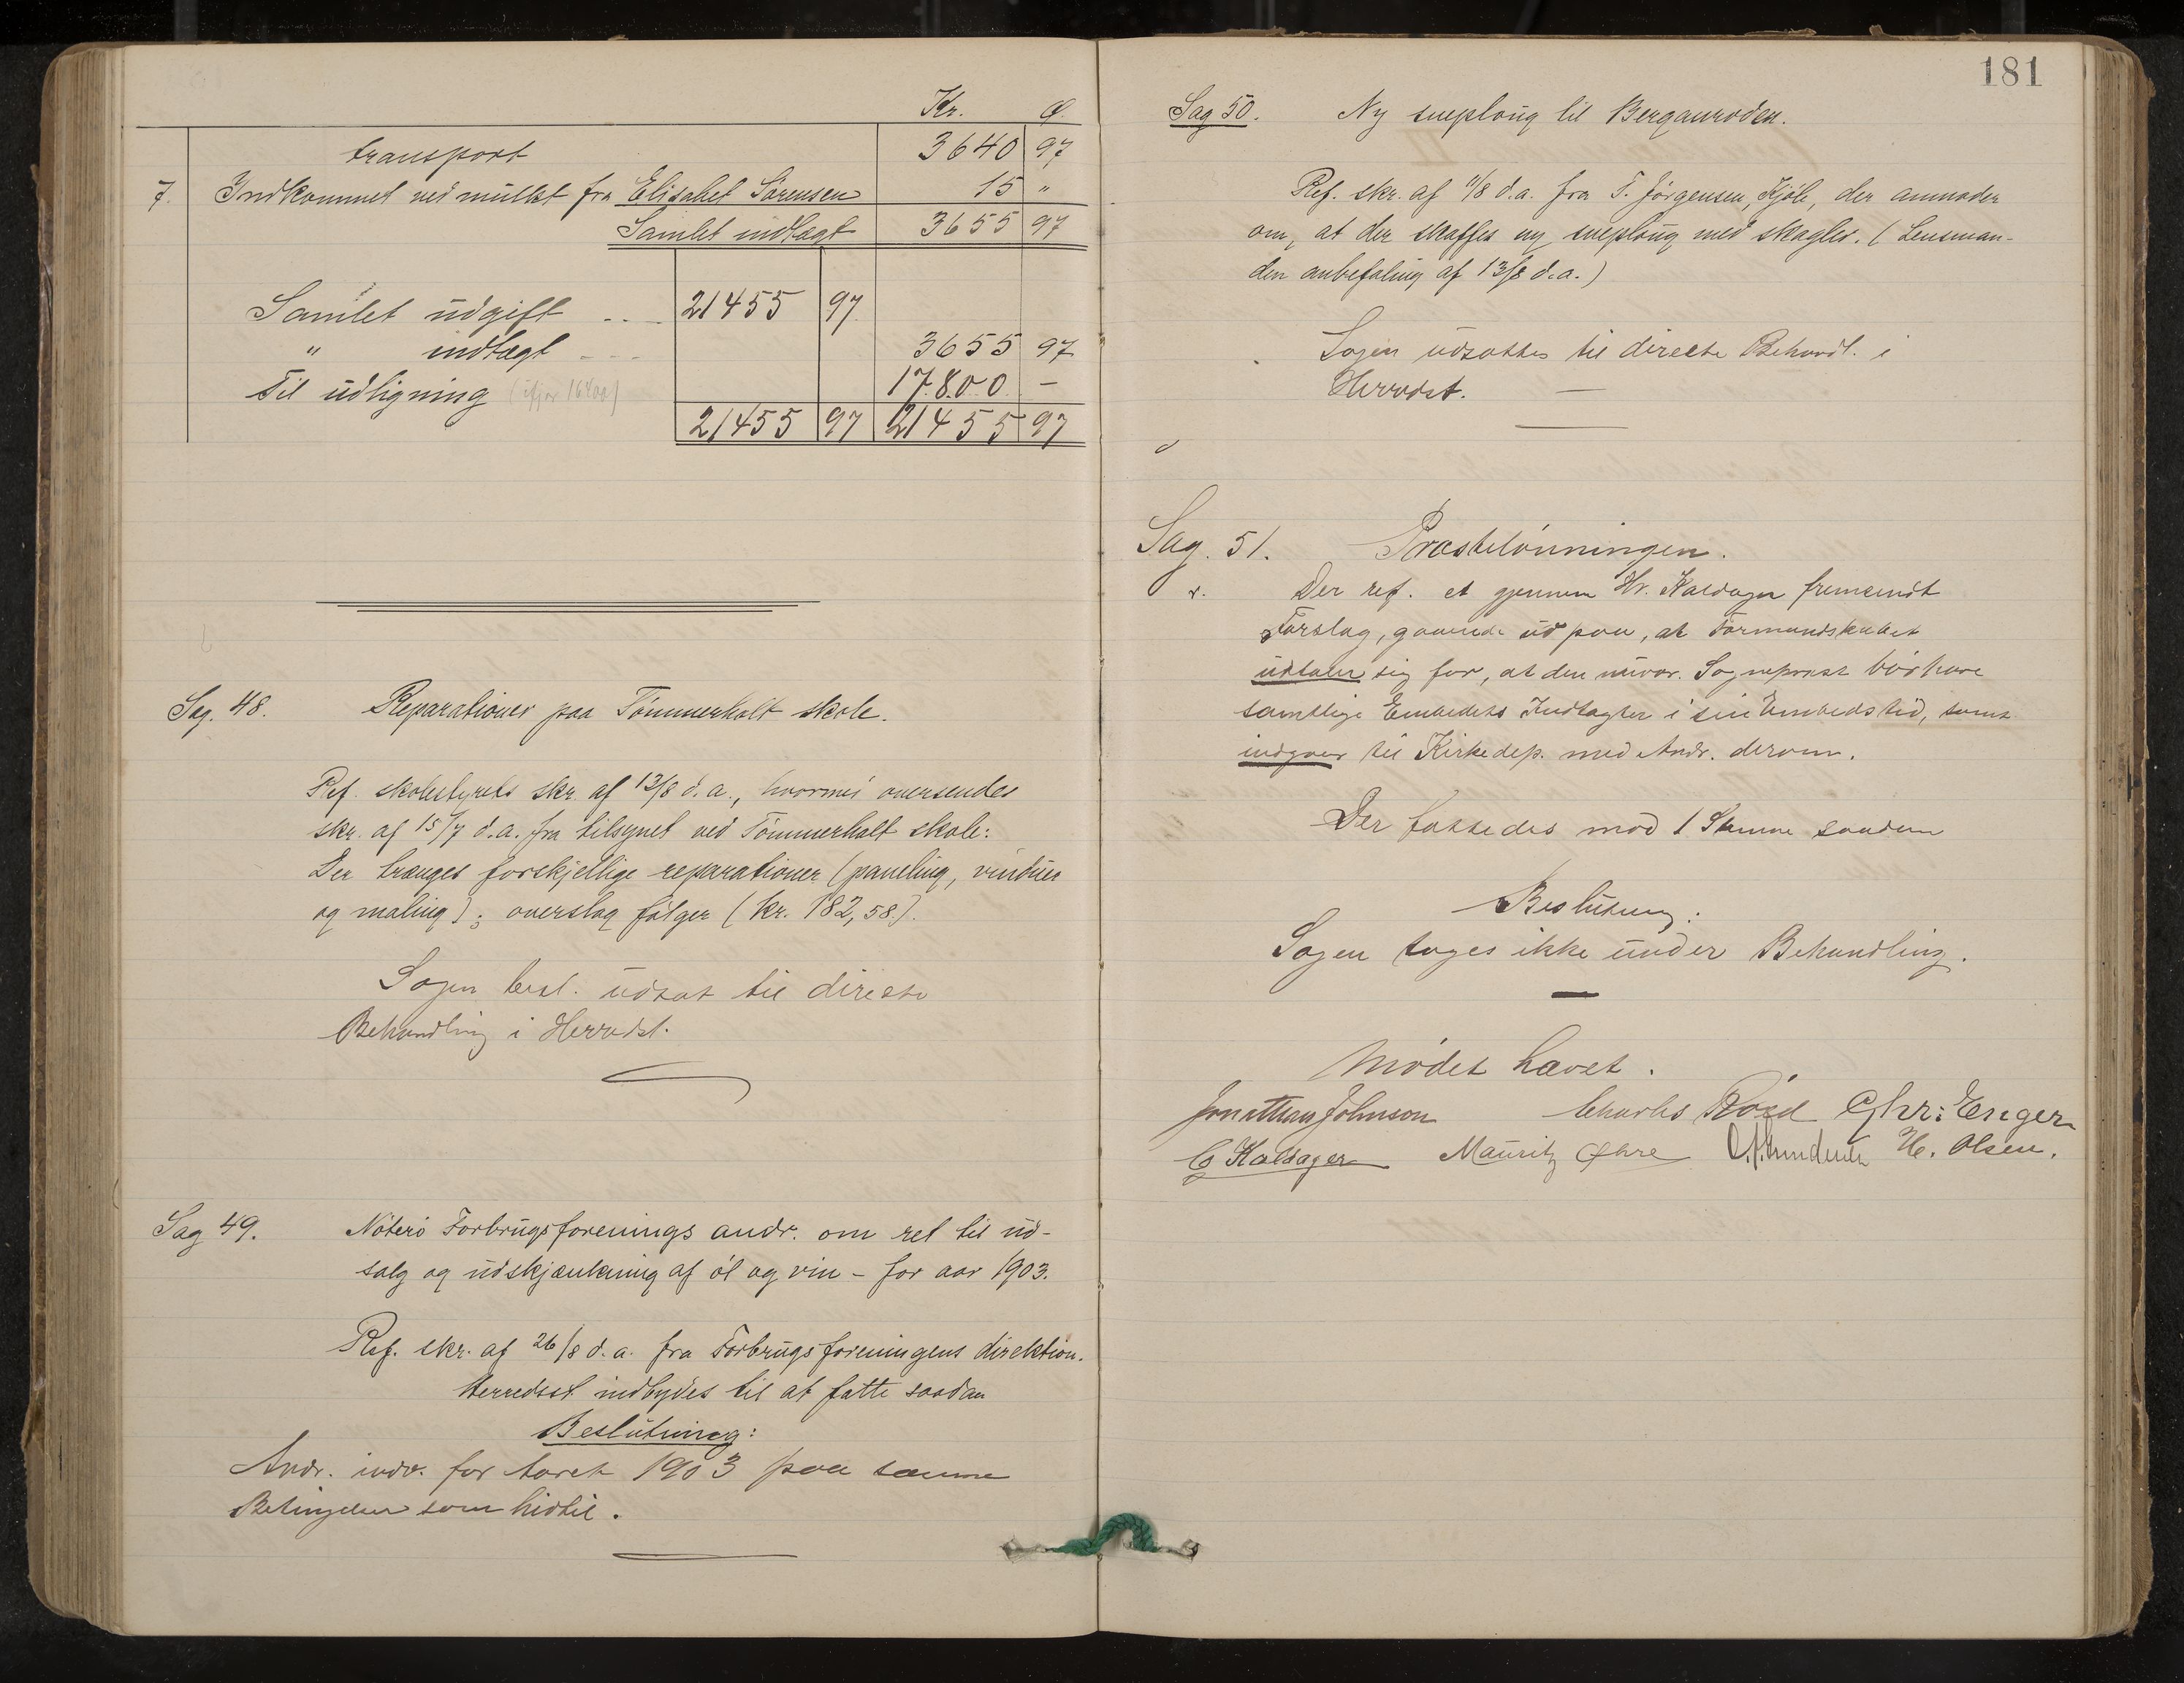 Kr. Ø.
transport 3640 97
7. Indkommet ved mulkt fra Elisabet Sörensen 15 "
Samlet indtægt 3655 97
Samlet udgift 21455 97
" indtægt 3655 97
Til udligning (ifjor 16400) 17800 –
21455 97 21455 97
Sag. 48. Reparationer paa Tömmerholt skole.
Ref. skolestyrets skr. af 13/8 d.a., hvormed oversendes
skr. af 15/7 d.a. fra tilsynet ved Tömmerholt skole:
Der trænges forskjellige reparationer (paneling, vinduer
og maling); overslag fölger (kr. 182,58).
Sagen besl. udsat til directe
Behandling i Herredst.
Sag 49. Nöterö Forbrugsforenings andr. om ret til ud-
salg og udskjænkning af öl og vin – for aar 1903.
Ref. skr. af 26/8 d.a. fra Forbrugsforeningens direktion.
Herredsst indbydes til at fatte saadan
Beslutning:
Andr. indv. for Aaret 1903 paa samme
Betingelser som hidtil.
181
Sag 50. Ny sneploug til Berganroden.
Ref. skr. af /8 d.a. fra T. Jörgensen, Kjöle, der anmoder
om, at der skaffes ny sneploug med skagler. (Lensman-
den anbefaling af 13/8 d.a.)
Sagen udsættes til directe Behandl. i
Herredst.
Sag. 51. Præstelönningen.
Der ref. et gjennem Hr. Kaldager fremsendt
Forslag, gaaende ud paa, at Formandskabet
udtaler sig for, at den nuvær. Sognepræst bör have
samtlige Embedets Indtægter i sin Embedstid, samt
indgaar til Kirkedep. med Andr. derom.
Der fattedes mod 1 Stemme saadan
Beslutning:
Sagen tages ikke under Behandling.
Mödet hævet.
Jonathan Johnson Charles Röed Chr: Enger
C Kaldager Mauritz Öhre H. Olsen.